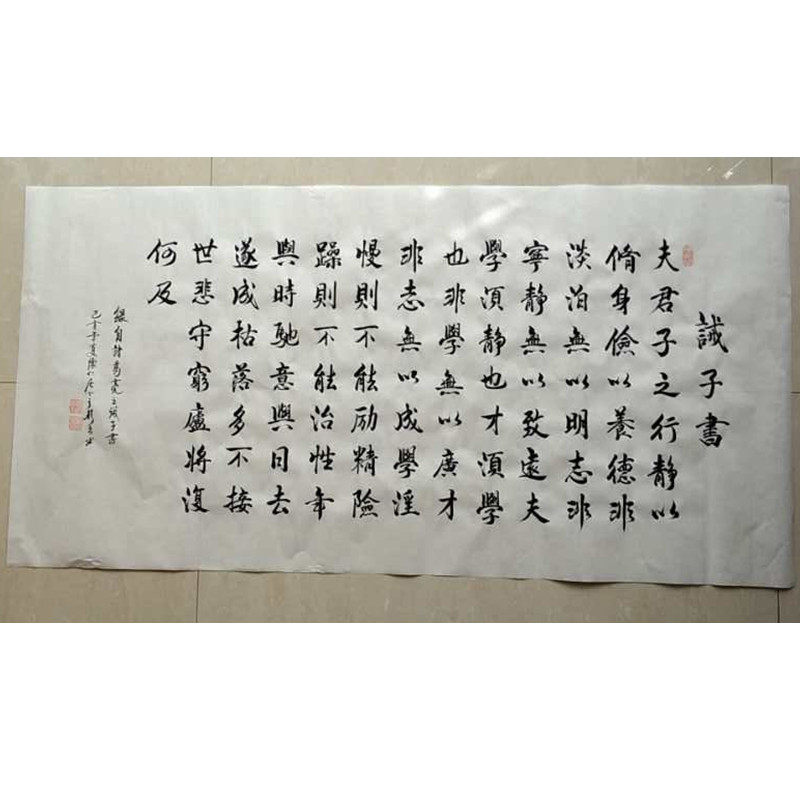 誡子書
夫君子之行静以
脩身儉以養德非
淡泊無以明志非
寧静無以致遠夫
學須静也才須學
也非學無以廣才
非志無以成學淫
慢則不能励精險
躁則不能治性年
與時馳意與日去
遂成枯落多不接
世悲守窮廬將復
何及
録自諸葛亮之誡子書
己亥年夏